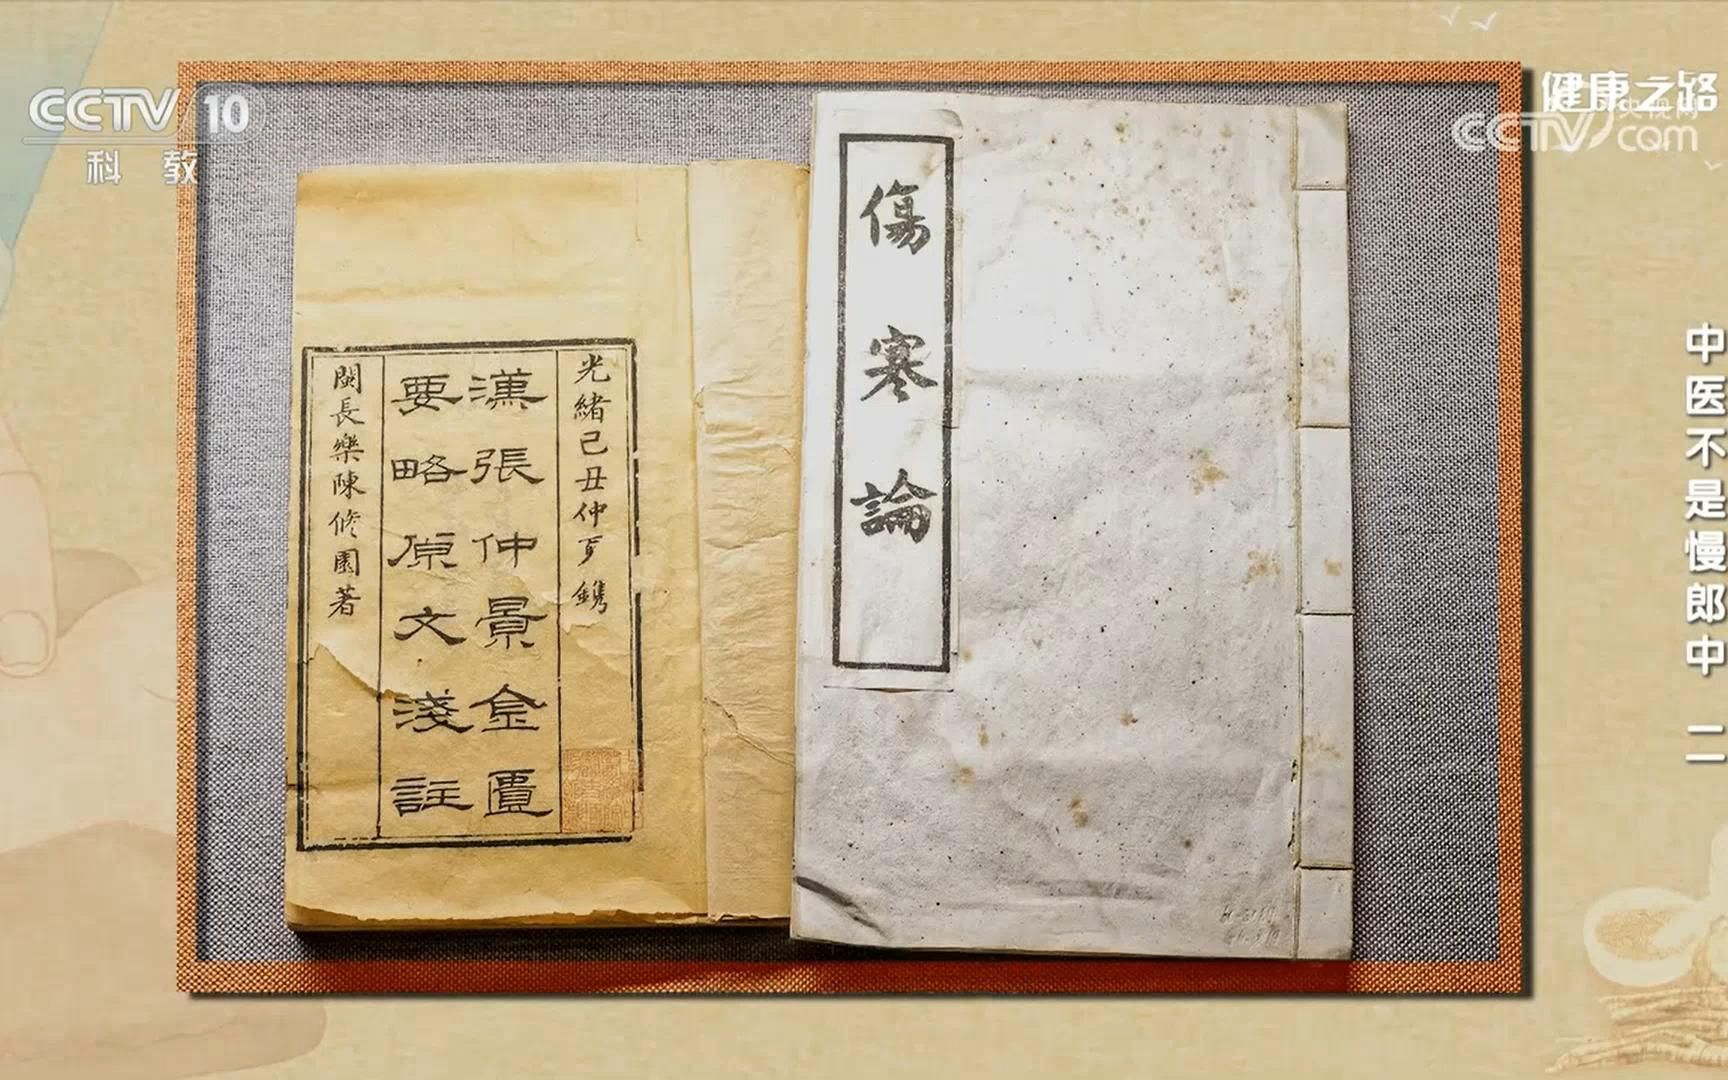 CCTV 10
科教
健康之路
央视网
CCTV.com
中医不是慢郎中 二
傷寒論
光緒己丑仲夏鐫
漢張仲景金匱
要略原文淺註
閩長樂陳修園著